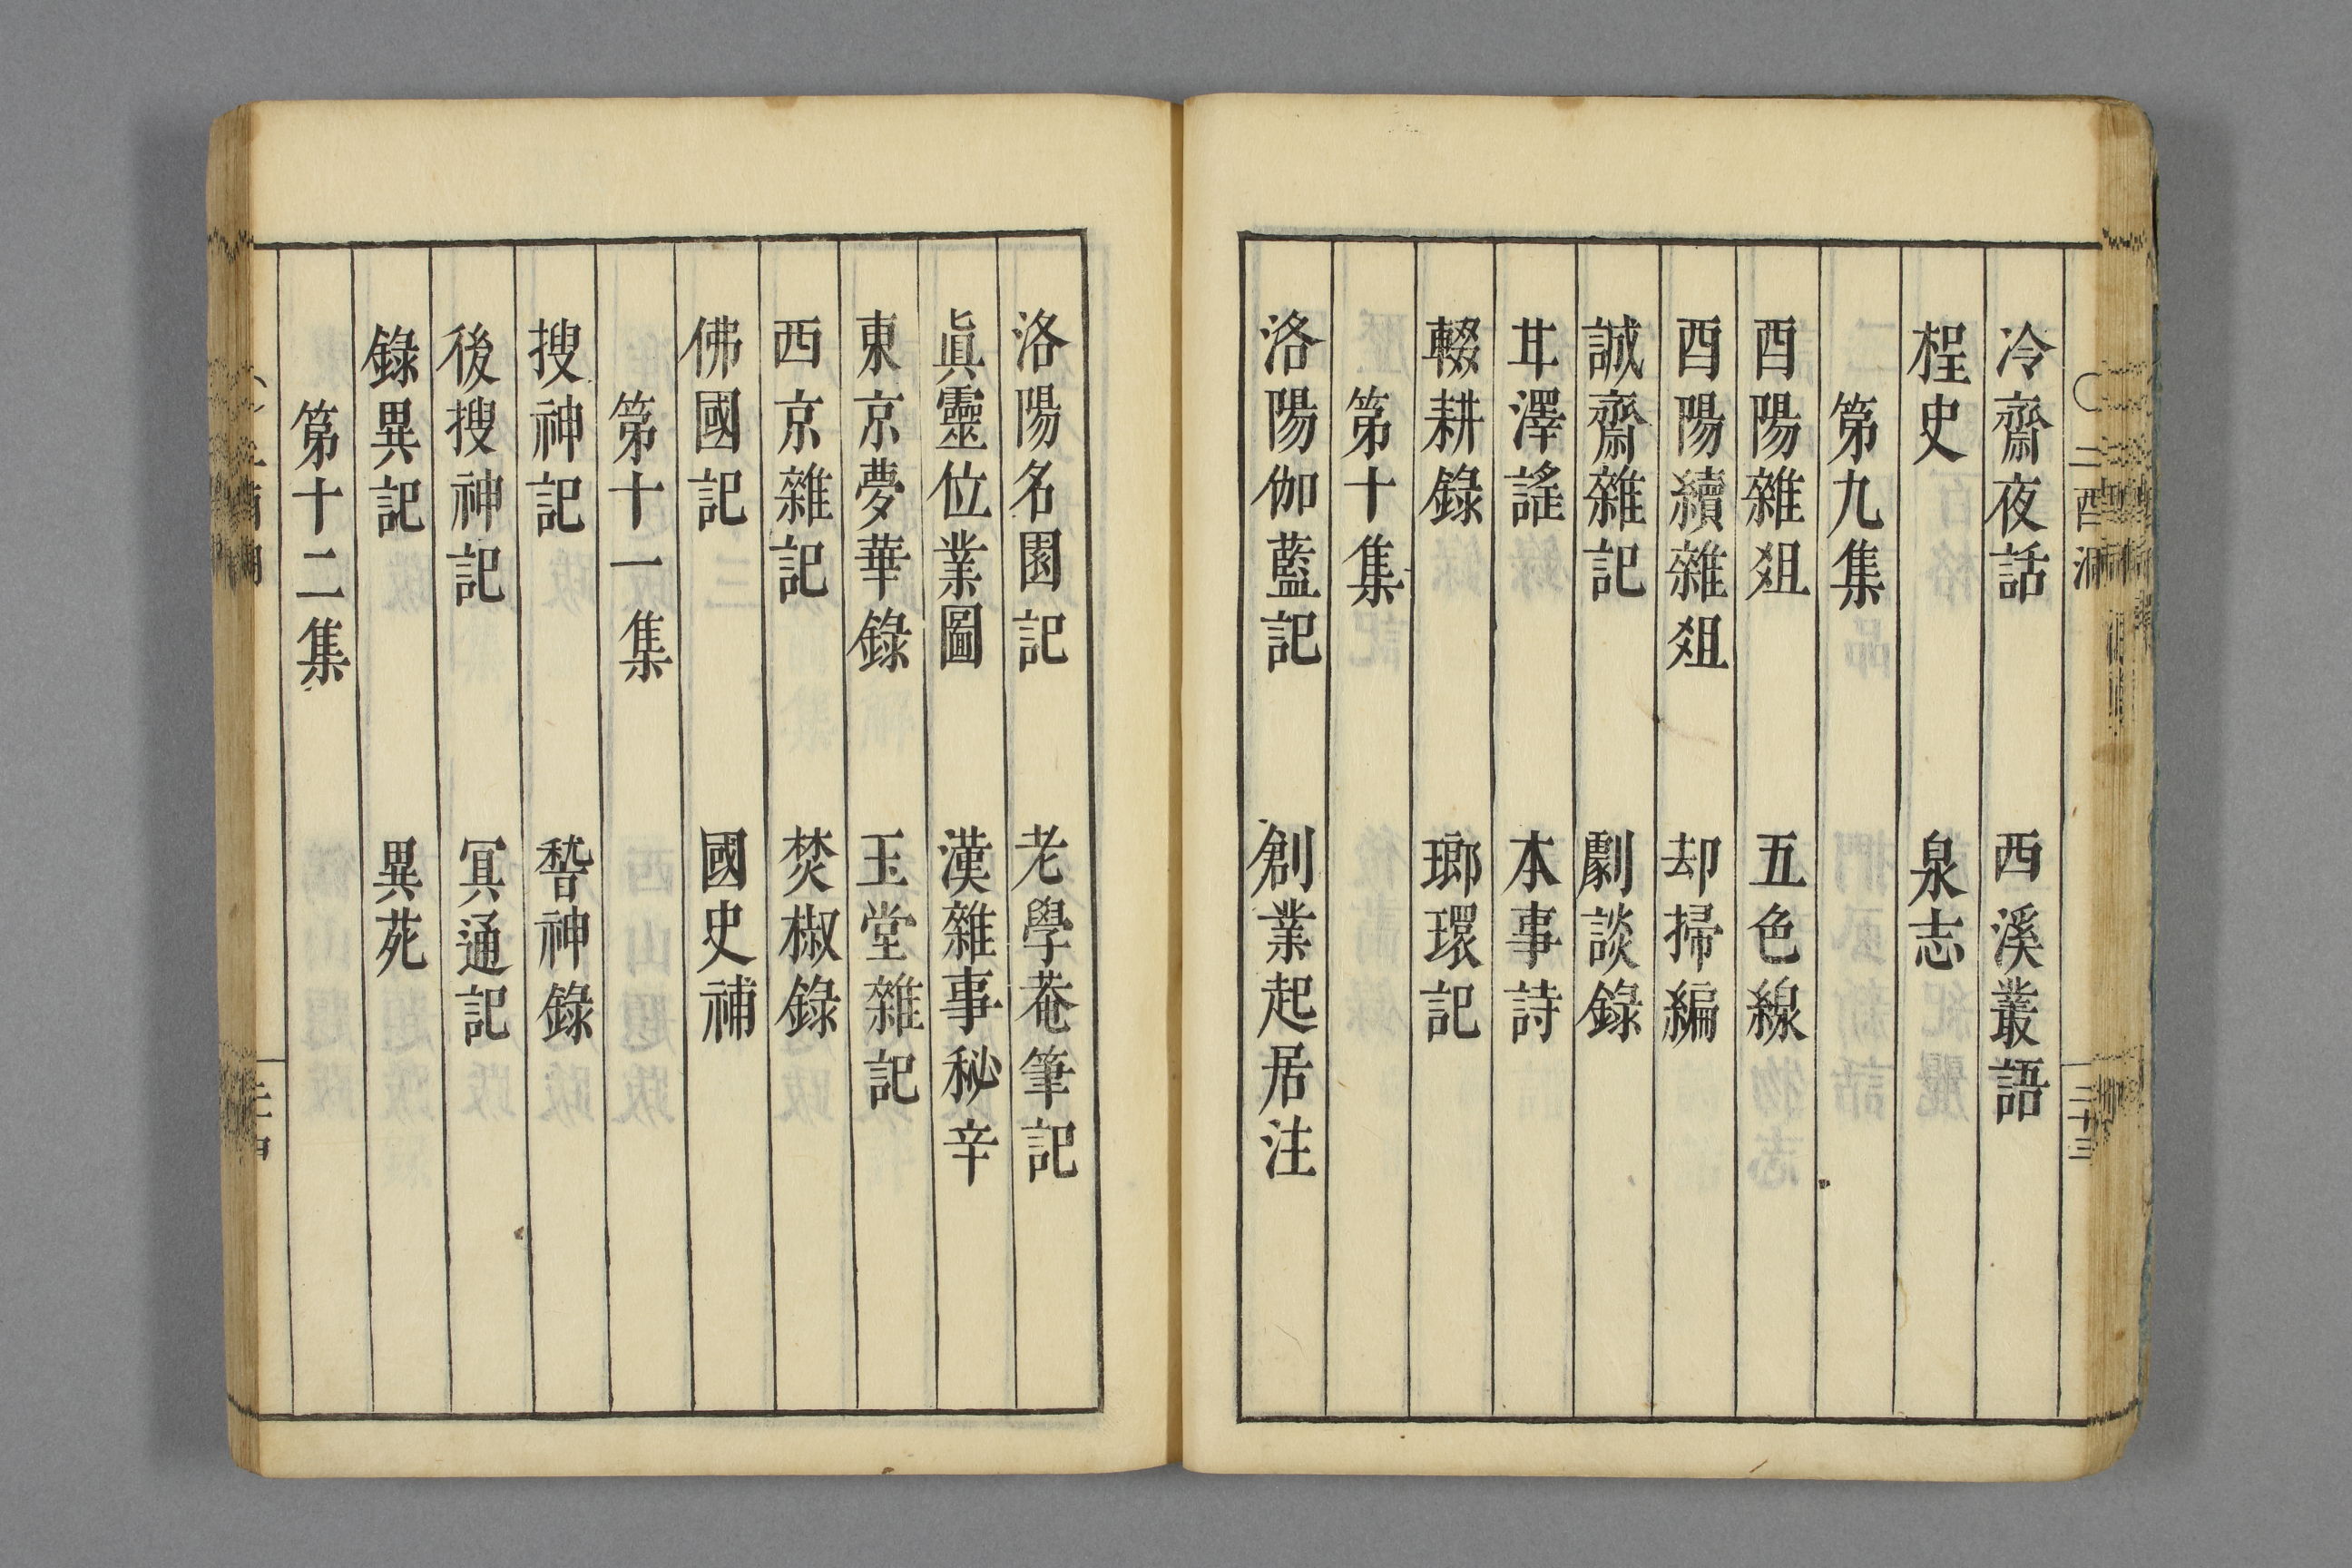 冷齋夜話　西溪叢語
桯史　泉志
第九集
酉陽雜俎　五色線
酉陽續雜俎　却掃編
誠齋雜記　劇談錄
甘澤謠　本事詩
輟耕錄　瑯環記
第十集
洛陽伽藍記　創業起居注
洛陽名園記　老學菴筆記
眞靈位業圖　漢雜事秘辛
東京夢華錄　玉堂雜記
西京雜記　焚椒錄
佛國記　國史補
第十一集
搜神記　稽神錄
後搜神記　冥通記
錄異記　異苑
第十二集